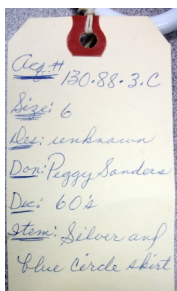 Acq.# 130.88.3.C
Size: 6
Des: unknown
Don: Peggy Sanders
Dec: 60's
Item: Silver and
blue circle skirt